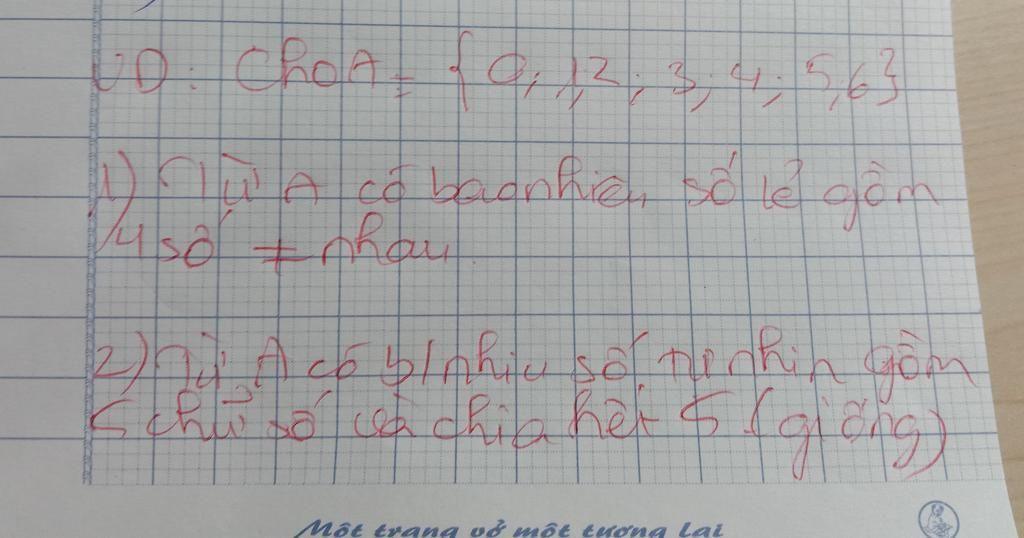 VD: Cho A = { 0; 1; 2; 3; 4; 5; 6}
1) Từ A có baonhieu số lẻ gồm
4 số ≠ nhau.
2) Từ A có b/nhiu số tự nhin gồm
5 chữ số và chia hết 5 (giống)
Một trang vở một tương lai